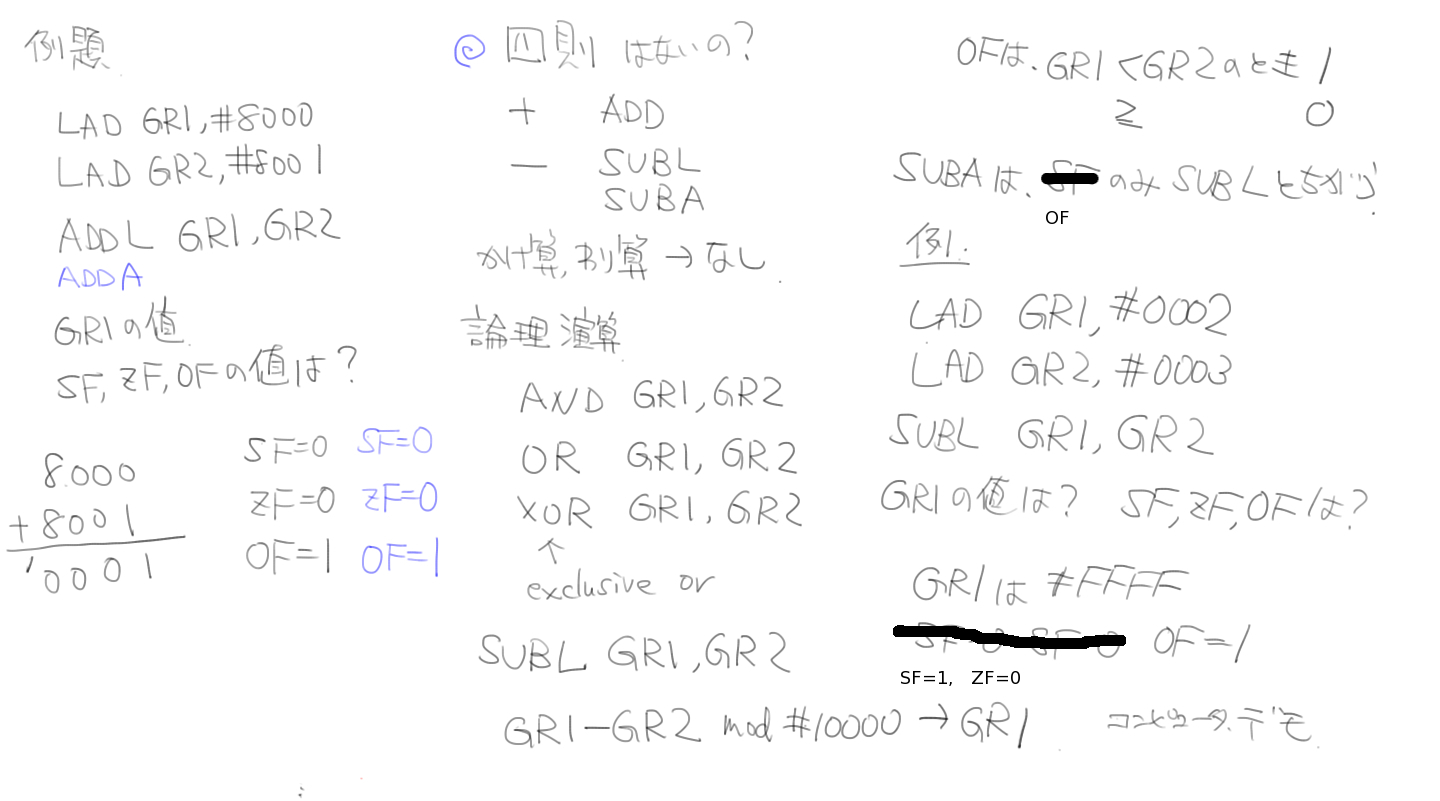 例題
LAD GR1,#8000
LAD GR2,#8001
ADDL GR1,GR2
ADDA
GR1の値
SF,ZF,OFの値は?
8000
+8001
10001
SF=0 SF=0
ZF=0 ZF=0
OF=1 OF=1
@ 四則はないの?
+ ADD
− SUBL
SUBA
かけ算,わり算→なし
論理演算
AND GR1,GR2
OR GR1,GR2
XOR GR1,GR2
↑
exclusive or
SUBL GR1,GR2
GR1−GR2 mod #10000→GR1
OFは、GR1<GR2のとき 1
≧ 0
SUBAは、のみSUBLとちがう
OF
例.
LAD GR1,#0002
LAD GR2,#0003
SUBL GR1,GR2
GR1の値は? SF,ZF,OFは?
GR1は #FFFF
OF=1
SF=1, ZF=0
コンピュータ.デモ